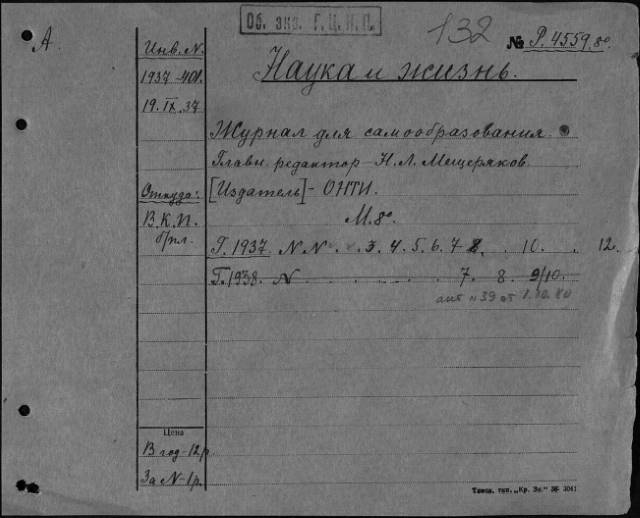 Об. экз. Г.Ц.К.П.
132
№ Р. 4559.8º
А
Инв. N.
Наука и жизнь.
1937-401.
19.IX.37
Журнал для самообразования.
Главн. редактор - Н.Л. Мещеряков.
Откуда:
[Издатель] - ОНТИ.
В.К.П.
б/пл.
М. 8º
Г. 1937. N N . . 3. 4. 5. 6. 7 8. . 10. . 12.
Г. 1938. N . . . . . . 7. 8. 9/10.
акт N 39 от 1.10.80
Цена
В год - 12 р.
За N - 1 р.
Тип. „Кр. Зн." 3041